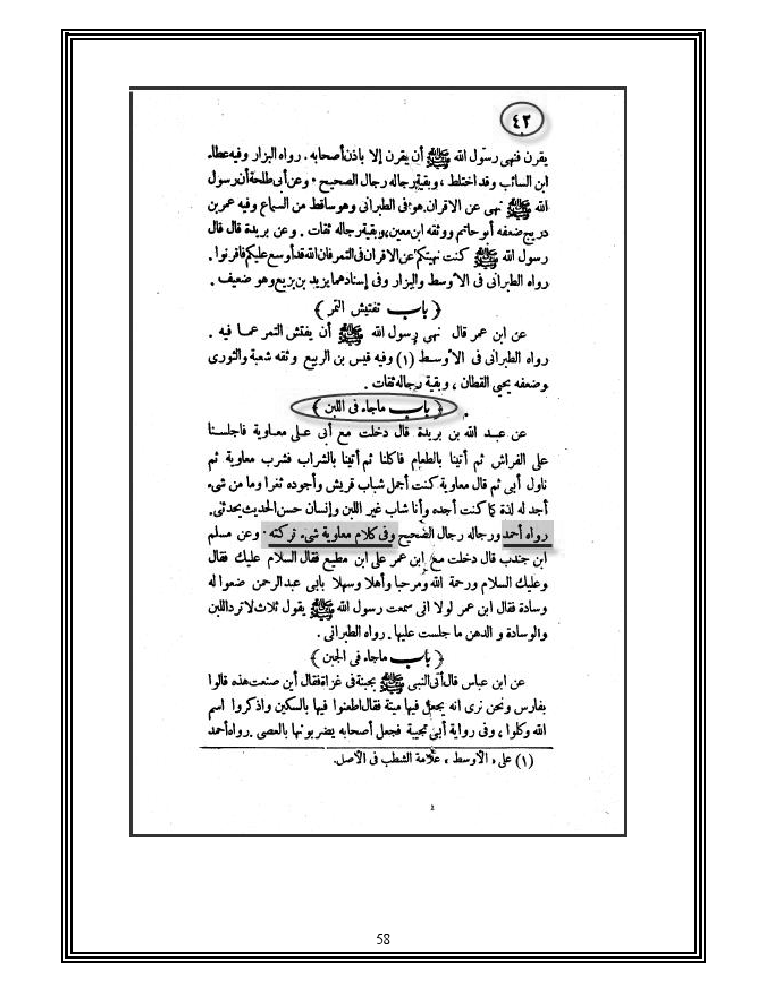 ٤٢
يقرن فنهى رسول الله ﷺ أن يقرن إلا باذن أصحابه. رواه البزار وفيه عطاء
ابن السائب وقد اختلط، وبقية رجاله رجال الصحيح. وعن أبى طلحة أن رسول
الله ﷺ نهى عن الاقران. هو فى الطبرانى وهو ساقط من السماع وفيه عمر بن
رديح ضعفه أبو حاتم ووثقه ابن معين وبقية رجاله ثقات. وعن بريدة قال قال
رسول الله ﷺ كنت نهيتكم عن الاقران فى التمر فان الله قد أوسع عليكم فاقرنوا.
رواه الطبرانى فى الأوسط والبزار وفى إسنادهما يزيد بن بزيع وهو ضعيف.
﴿ باب تفتيش التمر ﴾
عن ابن عمر قال نهى رسول الله ﷺ أن يفتش التمر عما فيه.
رواه الطبرانى فى الأوسط (١) وفيه قيس بن الربيع وثقه شعبة والثورى
وضعفه يحيى القطان، وبقية رجاله ثقات.
﴿ باب ماجاء فى اللبن ﴾
عن عبد الله بن بريدة قال دخلت مع أبى على معاوية فاجلسنا
على الفراش ثم أتينا بالطعام فاكلنا ثم أتينا بالشراب فشرب معاوية ثم
ناول أبى ثم قال معاوية كنت أجمل شباب قريش وأجوده ثغرا وما من شىء
أجد له لذة كما كنت أجده وأنا شاب غير اللبن وإنسان حسن الحديث يحدثنى.
رواه أحمد ورجاله رجال الصحيح وفى كلام معاوية شىء تركته. وعن مسلم
ابن جندب قال دخلت مع ابن عمر على ابن مطيع فقال السلام عليك فقال
وعليك السلام ورحمة الله ومرحبا وأهلا وسهلا بابى عبدالرحمن ضعوا له
وسادة فقال ابن عمر لولا انى سمعت رسول الله ﷺ يقول ثلاث لا ترد اللبن
والوسادة والدهن ما جلست عليها. رواه الطبرانى.
﴿ باب ماجاء فى الجبن ﴾
عن ابن عباس قال أتى النبى ﷺ بجبنة فى غزاة فقال أين صنعت هذه قالوا
بفارس ونحن نرى انه يجعل فيها ميتة فقال اطعنوا فيها بالسكين واذكروا اسم
الله وكلوا، وفى رواية أتى بجبنة فجعل أصحابه يضربونها بالعصى. رواه أحمد
(١) على، الأوسط، علامة الشطب فى الأصل.
58